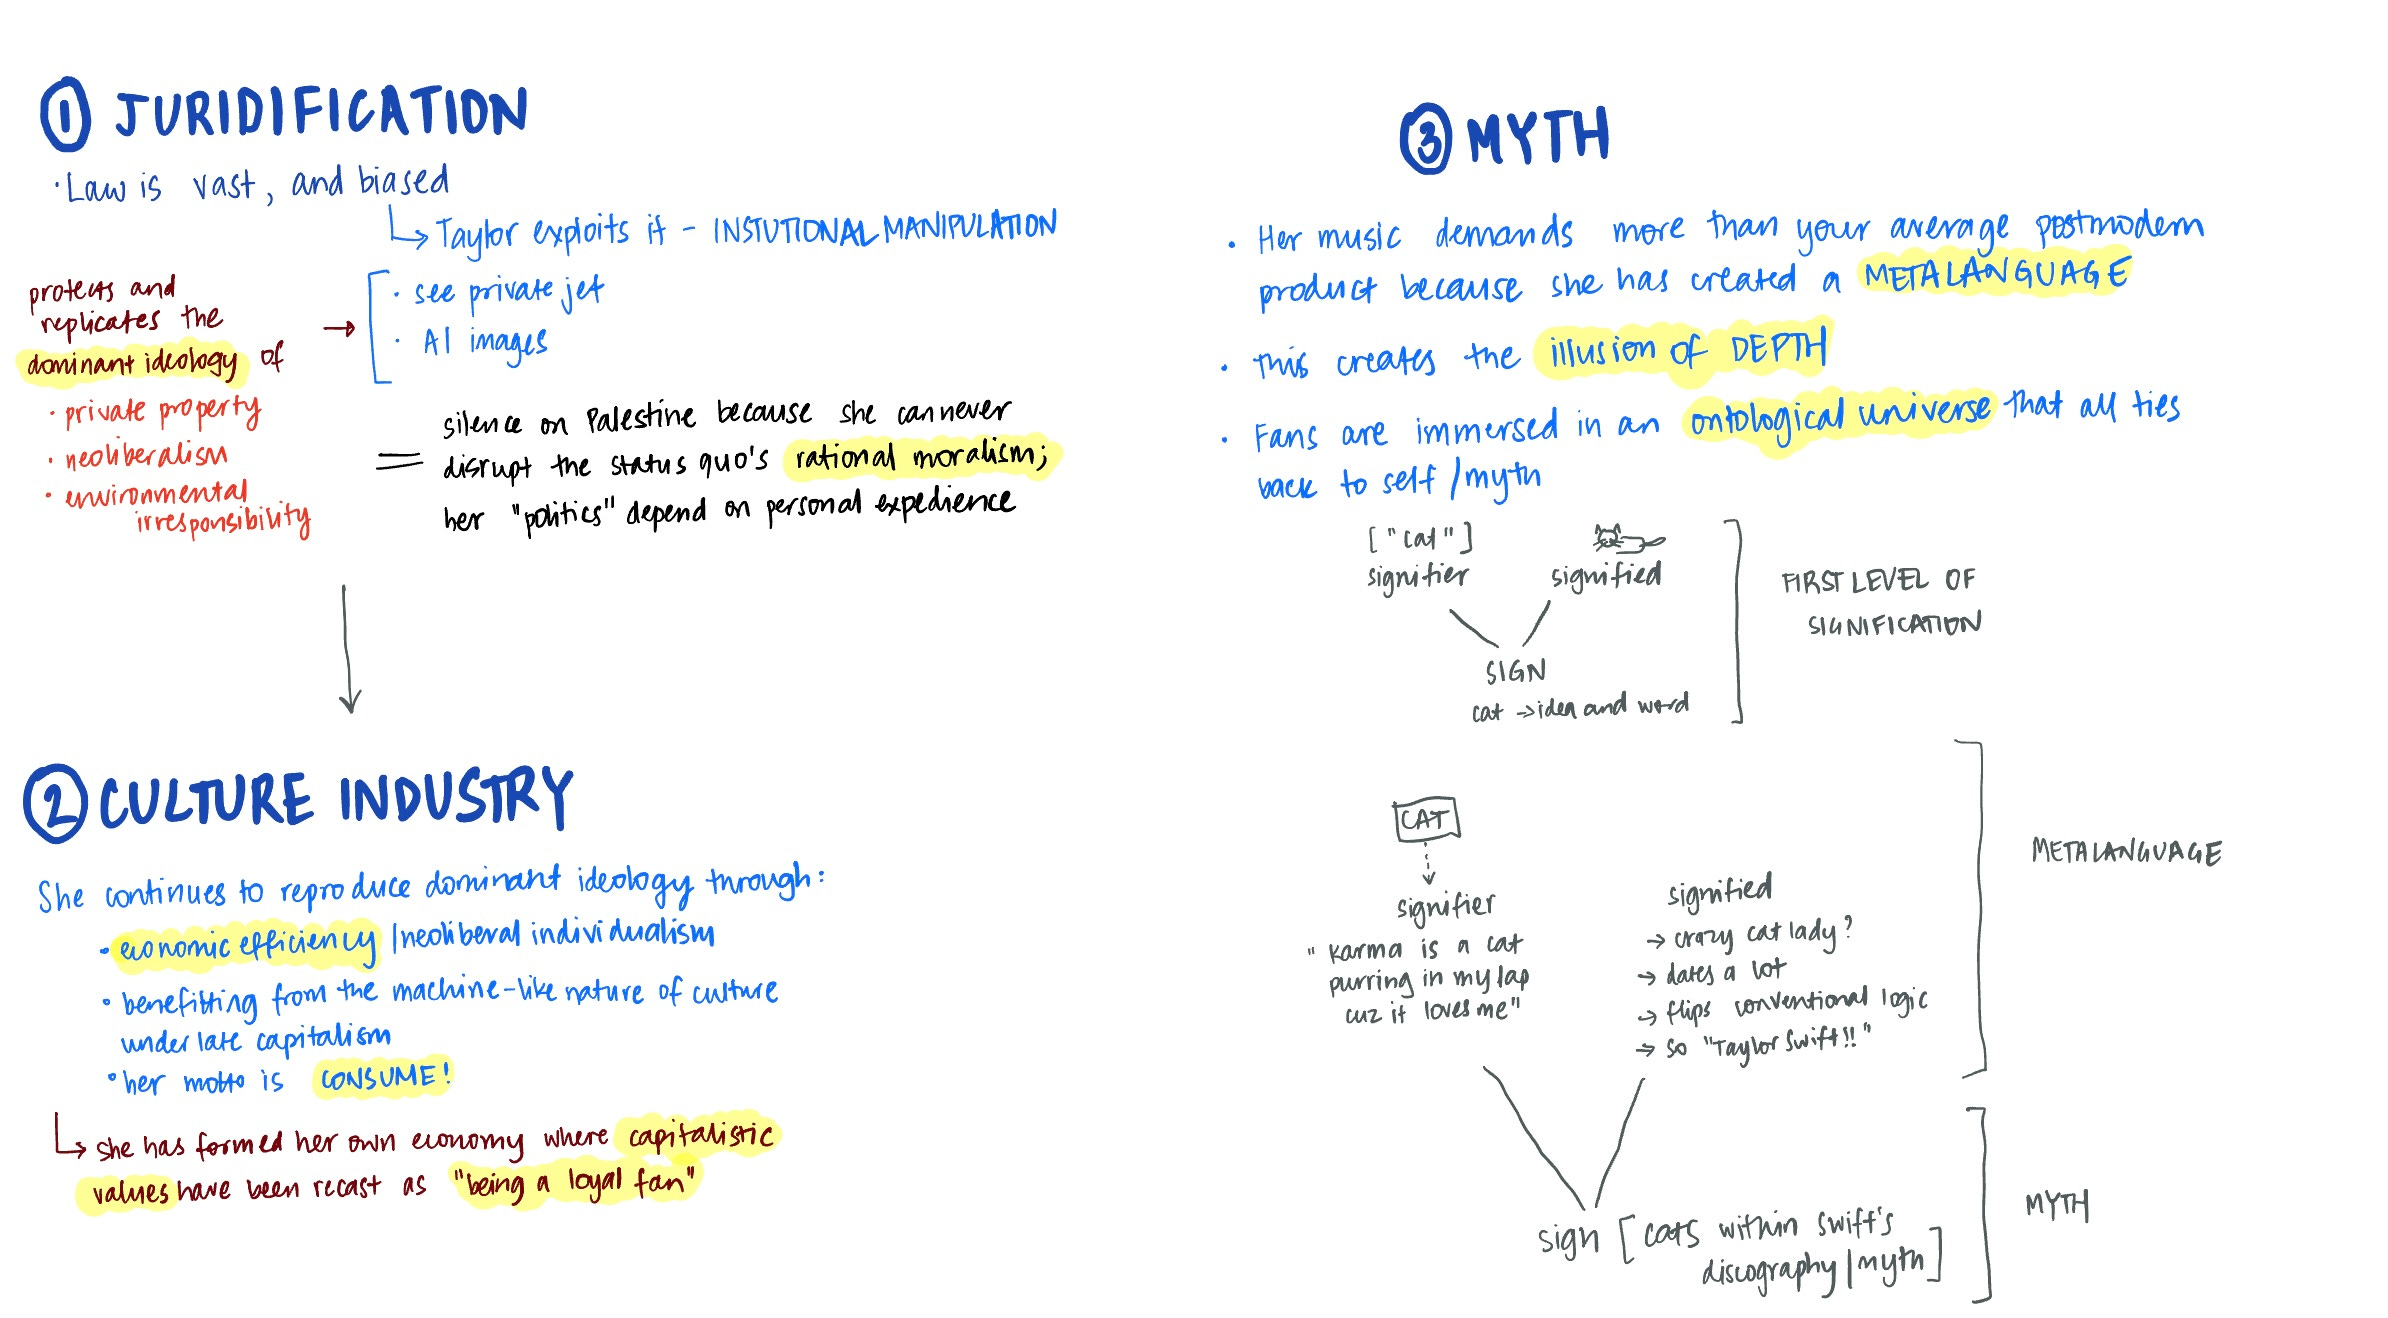 ① JURIDIFICATION
· Law is vast, and biased
↳ Taylor exploits it - INSTUTIONAL MANIPULATION
protects and
replicates the
dominant ideology of
· private property
· neoliberalism
· environmental
irresponsibility
→
· see private jet
· AI images
= silence on Palestine because she can never
disrupt the status quo's rational moralism;
her "politics" depend on personal expedience
② CULTURE INDUSTRY
She continues to reproduce dominant ideology through:
· economic efficiency / neoliberal individualism
· benefitting from the machine-like nature of culture
under late capitalism
· her motto is CONSUME!
↳ she has formed her own economy where capitalistic
values have been recast as "being a loyal fan"
③ MYTH
· Her music demands more than your average postmodern
product because she has created a METALANGUAGE
· This creates the illusion of DEPTH
· Fans are immersed in an ontological universe that all ties
back to self/myth
["cat"]
signifier
signified
SIGN
cat → idea and word
FIRST LEVEL OF
SIGNIFICATION
CAT
signifier
"Karma is a cat
purring in my lap
cuz it loves me"
signified
→ crazy cat lady?
→ dates a lot
→ flips conventional logic
→ so "Taylor Swift!!"
METALANGUAGE
sign [cats within swift's
discography/myth]
MYTH